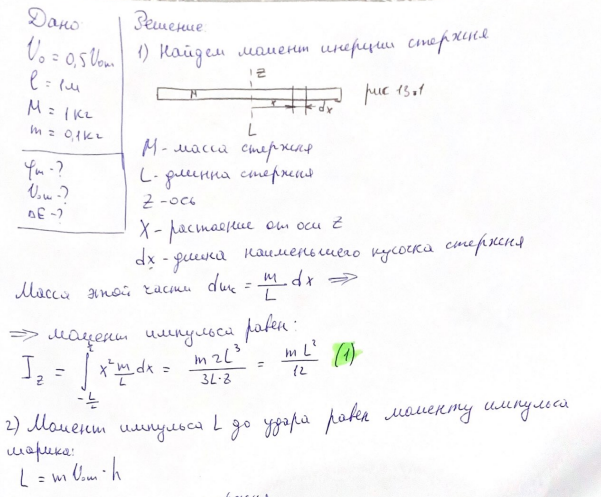 Дано
V₀ = 0,5 V₀ₘ
ℓ = 1м
M = 1кг
m = 0,1кг
φₘ - ?
V₀ₘ - ?
ΔE - ?
Решение:
1) Найдем момент инерции стержня
Z
M
x
dx
рис 13.1
L
M - масса стержня
L - длинна стержня
Z - ось
X - растоение от оси Z
dx - длина наименьшего кусочка стержня
Масса этой части dmₓ = m/L dx ⇒
⇒ момент импульса равен:
I_z = ∫ x² m/L dx = m2L³/3L·8 = mL²/12 (1)
2) Момент импульса L до удара равен моменту импульса
шарика:
L = m V₀ₘ · h